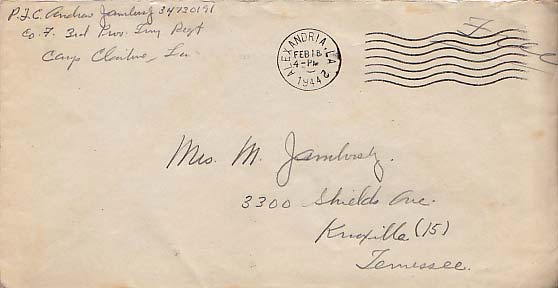 P.F.C. Andrew Jamborsky 34730191
Co. F. 3rd Prov. Trng Regt
Camp Claiborne, La.
ALEXANDRIA, LA.
FEB 18
4-PM
1944
2
Free
Mrs. M. Jamborsky.
3300 Shields Ave.
Knoxville (15)
Tennessee.